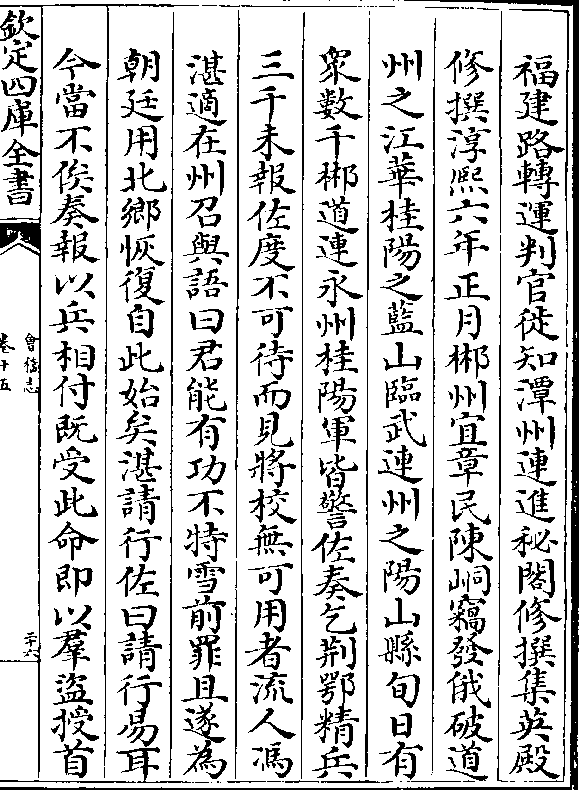 福建路轉運判官徙知潭州連進秘閣修撰集英殿
修撰淳熙六年正月郴州宜章民陳峒竊發俄破道
州之江華桂陽之藍山臨武連州之陽山縣旬日有
衆數千郴道連永州桂陽軍皆警佐奏乞荆鄂精兵
三千未報佐度不可待而見將校無可用者流人馮
湛適在州召與語曰君能有功不特雪前罪且遂為
朝廷用北鄉恢復自此始矣湛請行佐曰請行易耳
今當不俟奏報以兵相付既受此命即以羣盜授首
欽定四庫全書
會稽志
卷十五
二十六